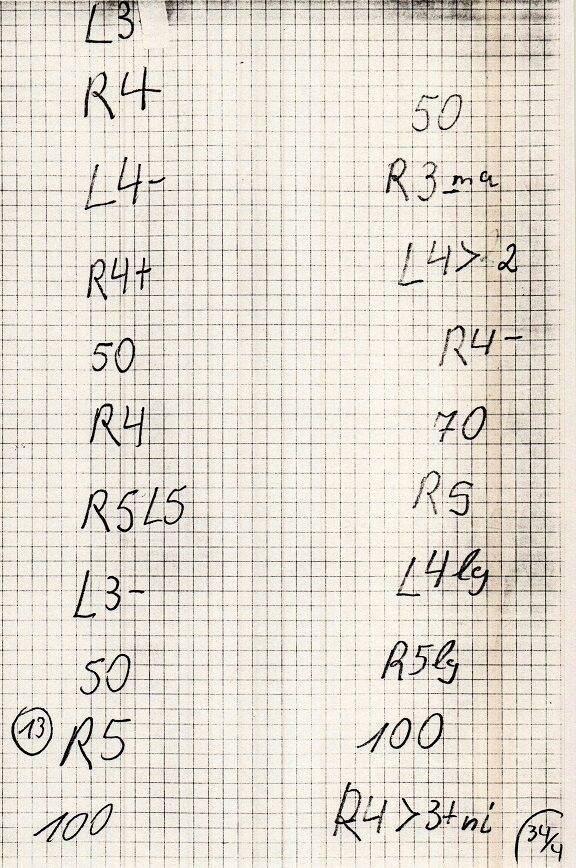 L3
R4
L4-
R4+
50
R4
R5L5
L3-
50
13 R5
100
50
R3 ma
L4>2
R4-
70
R5
L4lg
R5lg
100
R4>3+ni
34/4